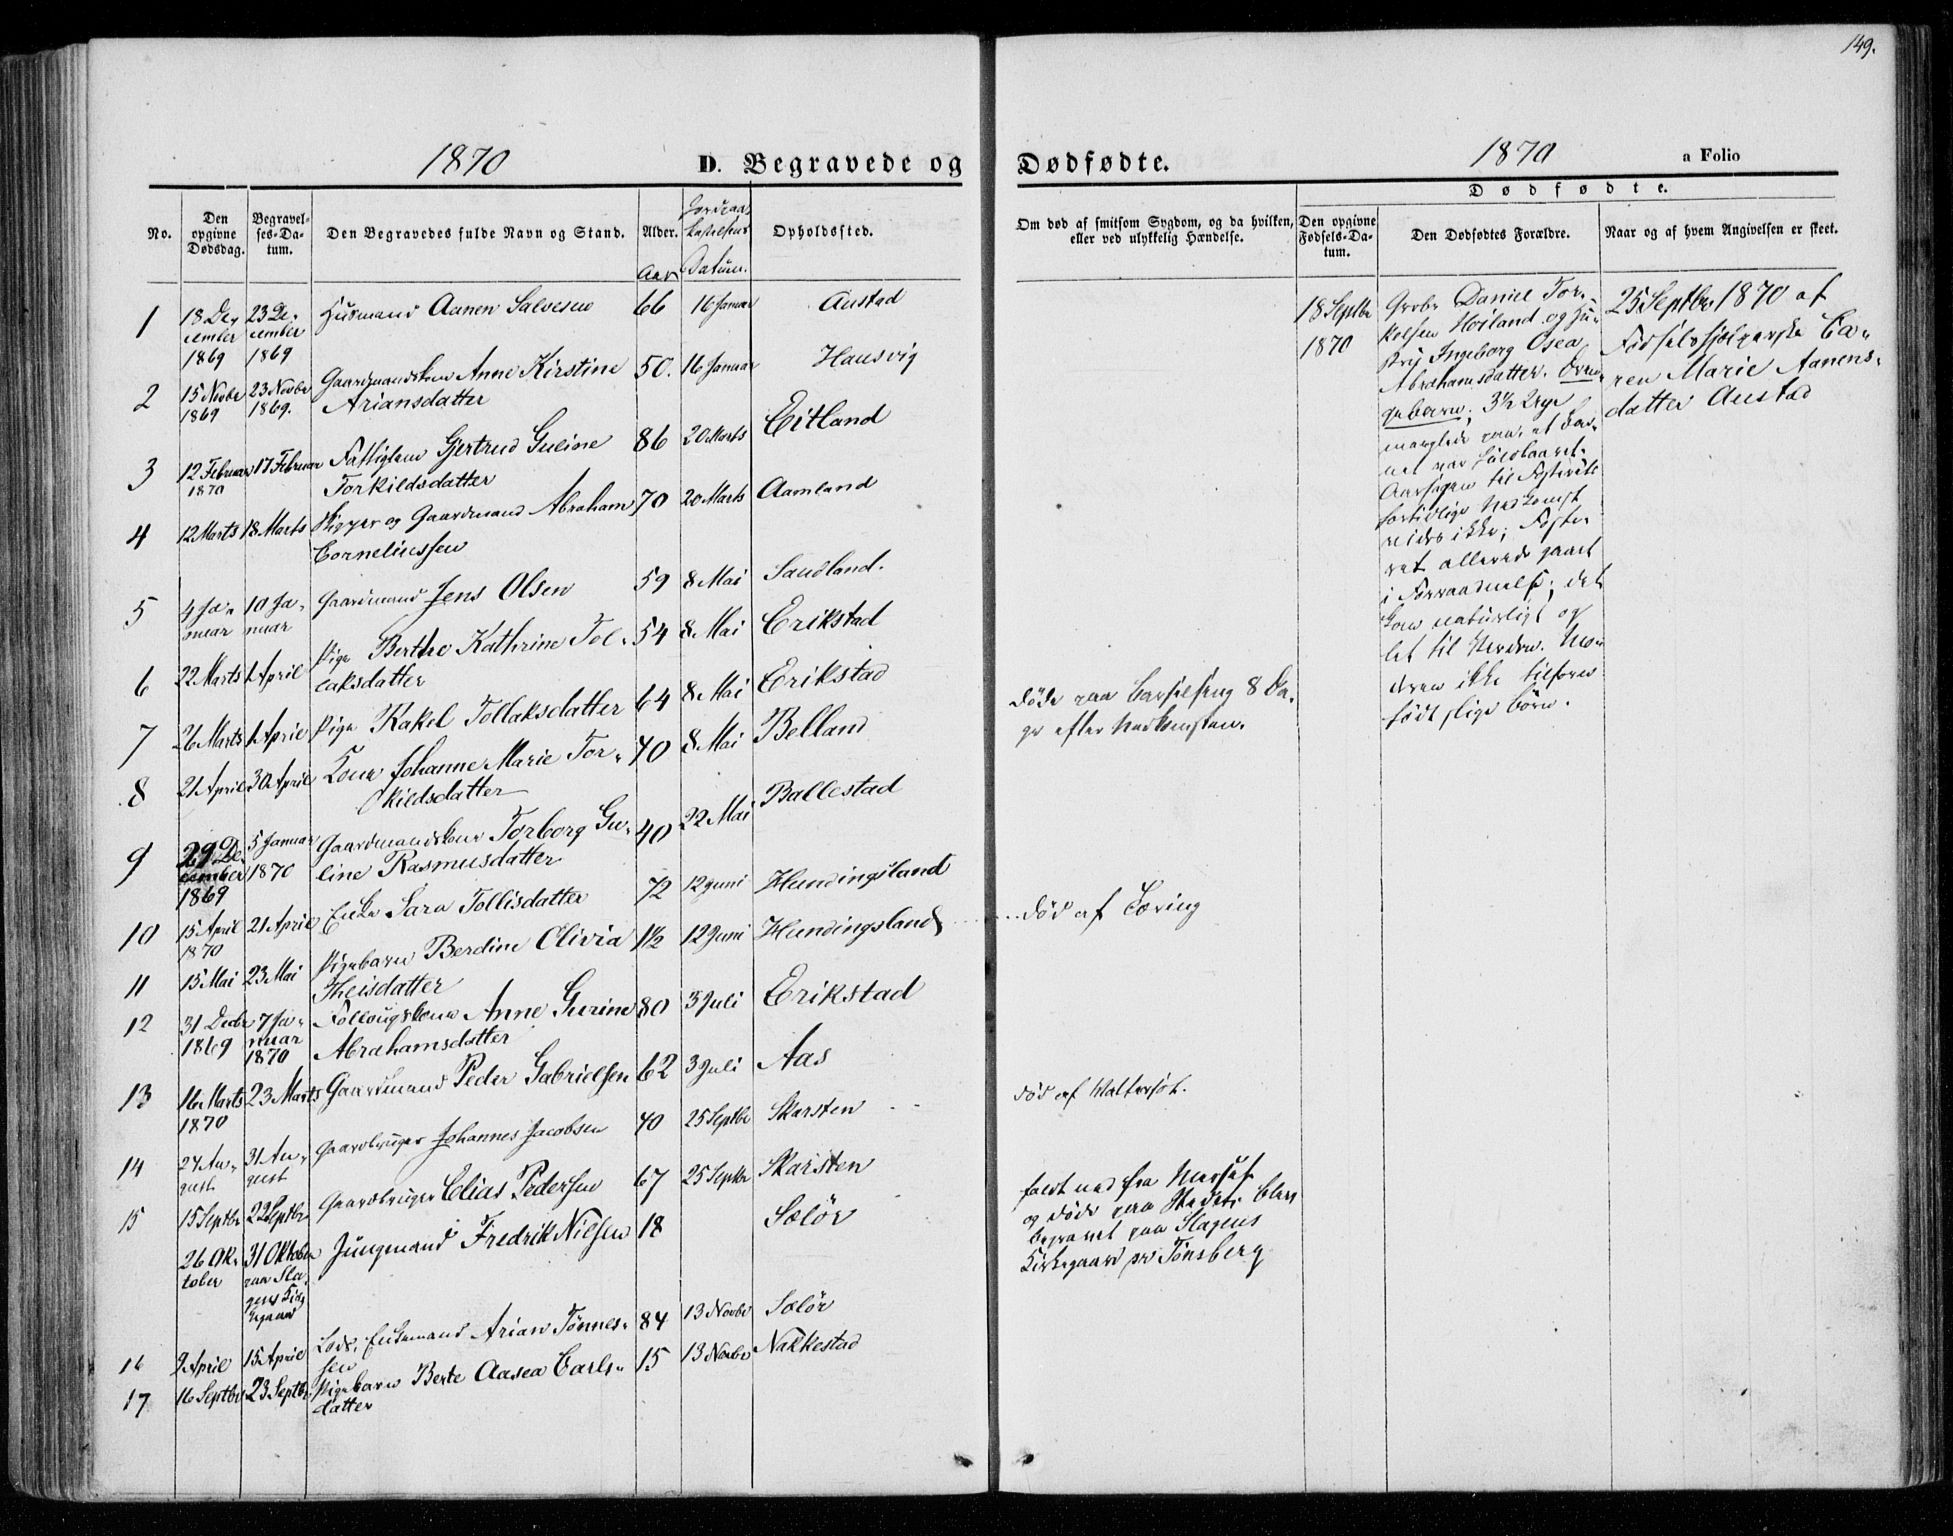 149.
1870
D. Begravede og
Dødfødte.
1870
a Folio
No.
Den opgivne Dødsdag.
Begravelses-Datum.
Den Begravedes fulde Navn og Stand.
Alder.
Aar
Jordpaakastelsens Datum.
Opholdssted.
Om død af smitsom Sygdom, og da hvilken, eller ved ulykkelig Hændelse.
Dødfødte.
Den opgivne Fødsels-Datum.
Den Dødfødtes Forældre.
Naar og af hvem Angivelsen er skeet.
1 18 December 1869 23 December 1869 Husmand Aanen Salvesen 66 16 Januar Austad
2 15 Novbr 1869 23 Novbr 1869. Gaardmandskone Anne Kirstine Ariansdatter 50. 16 Januar Hausvig
3 12 Februar 1870 17 Februar Fattiglem Gjertrud Guline Torkildsdatter 86 20 Marts Eitland
4 12 Marts 18 Marts Skipper og Gaardmand Abraham Corneliussen 70 20 Marts Aamland
5 4 Januar 10 Januar Gaardmand Jens Olsen 59 8 Mai Sandland.
6 22 Marts 1 April Pige Berthe Kathrine Tollaksdatter 54 8 Mai Erikstad
7 26 Marts 1 April Pige Rakel Tollaksdatter 64 8 Mai Erikstad
8 21 April 30 April Kone Johanne Marie Torkildsdatter 40 8 Mai Belland
døde paa Barselseng 8 Da-
ge efter Nedkomsten.
9 29 December 1869 5 Januar 1870 Gaardmandskone Torborg Guline Rasmusdatter 40 22 Mai Ballestad
10 15 April 1870 21 April Enke Sara Tollisdatter 72 12 Juni Hundingsland
11 15 Mai 23 Mai Pigebarn Berdine Olivia Theisdatter 1½ 12 Juni Hundingsland
død af Tæring
12 31 Decbr 1869 7 Januar 1870 Følougskone Anne Gurine Abrahamsdatter 80 3 Juli Erikstad
13 16 Marts 1870 23 Marts Gaardmand Peder Gabrielsen 62 3 Juli Aas
14 24 August 31 August Gaardbruger Johannes Jacobsen 40 25 Septbr Skarsten
død af Wattersot.
15 15 Septbr 22 Septbr Gaardbruger Elias Pedersen 67 25 Septbr Skarsten
26 Oktober 31 Oktober paa Slagens Kirkegaard Jungmand Fredrik Nielsen 18 Sælør
faldt ned fra Mersef
og døde paa Stedet; blev
begravet paa Slagens
Kirkegaard pr Tönsberg
16 9 April 15 April Lods, Enkemand Arian Tønnessen 84 13 Novbr Sælør
17 16 Septbr 23 Septbr Pigebarn Berte Aasea Carlsdatter 15 13 Novbr Nakkestad
18 Septbr
1870
Grbr Daniel Tor-
kelsen Höiland og Hu-
stru Ingeborg Osea
Abrahamsdatter. Dren-
gebarn; 3½ Uge
manglede paa, at Bar-
net var fuldbaaret.
Aarsagen til Fosterets
fortidlige Nedkomst
vides ikke; Foste-
ret allerede gaaet
i Forraadnelse; det
kom naturligt og
let til Verden. Mo-
deren ikke tilforn
født slige Börn.
25 Septbr 1870 af
Fødselshjælperske Ca-
ren Marie Aanens-
datter Austad